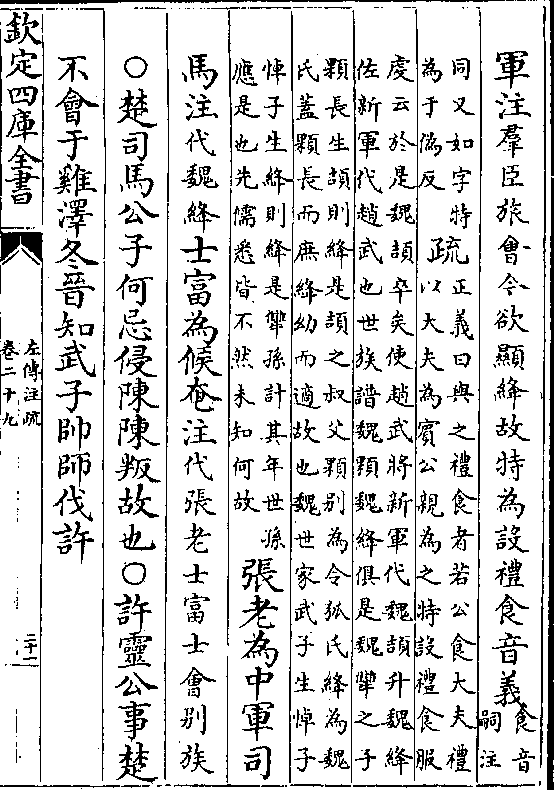 軍注羣臣旅會今欲顯絳故特為設禮食音義食音
嗣注
同又如字特
為于偽反疏正義曰與之禮食者若公食大夫禮
以大夫為賓公親為之特設禮食服
虔云於是魏頡卒矣使趙武將新軍代魏頡升魏絳
佐新軍代趙武也世族譜魏顆魏絳俱是魏犨之子
顆長生頡則絳是頡之叔父顆别為令狐氏絳為魏
氏蓋顆長而庶絳幼而適故也魏世家武子生悼子
悼子生絳則絳是犨孫計其年世孫
應是也先儒悉皆不然未知何故張老為中軍司
馬注代魏絳士富為候奄注代張老士富士會别族
○楚司馬公子何忌侵陳陳叛故也○許靈公事楚
不會于雞澤冬晉知武子帥師伐許
欽定四庫全書
左傳注疏
卷二十九
二十一